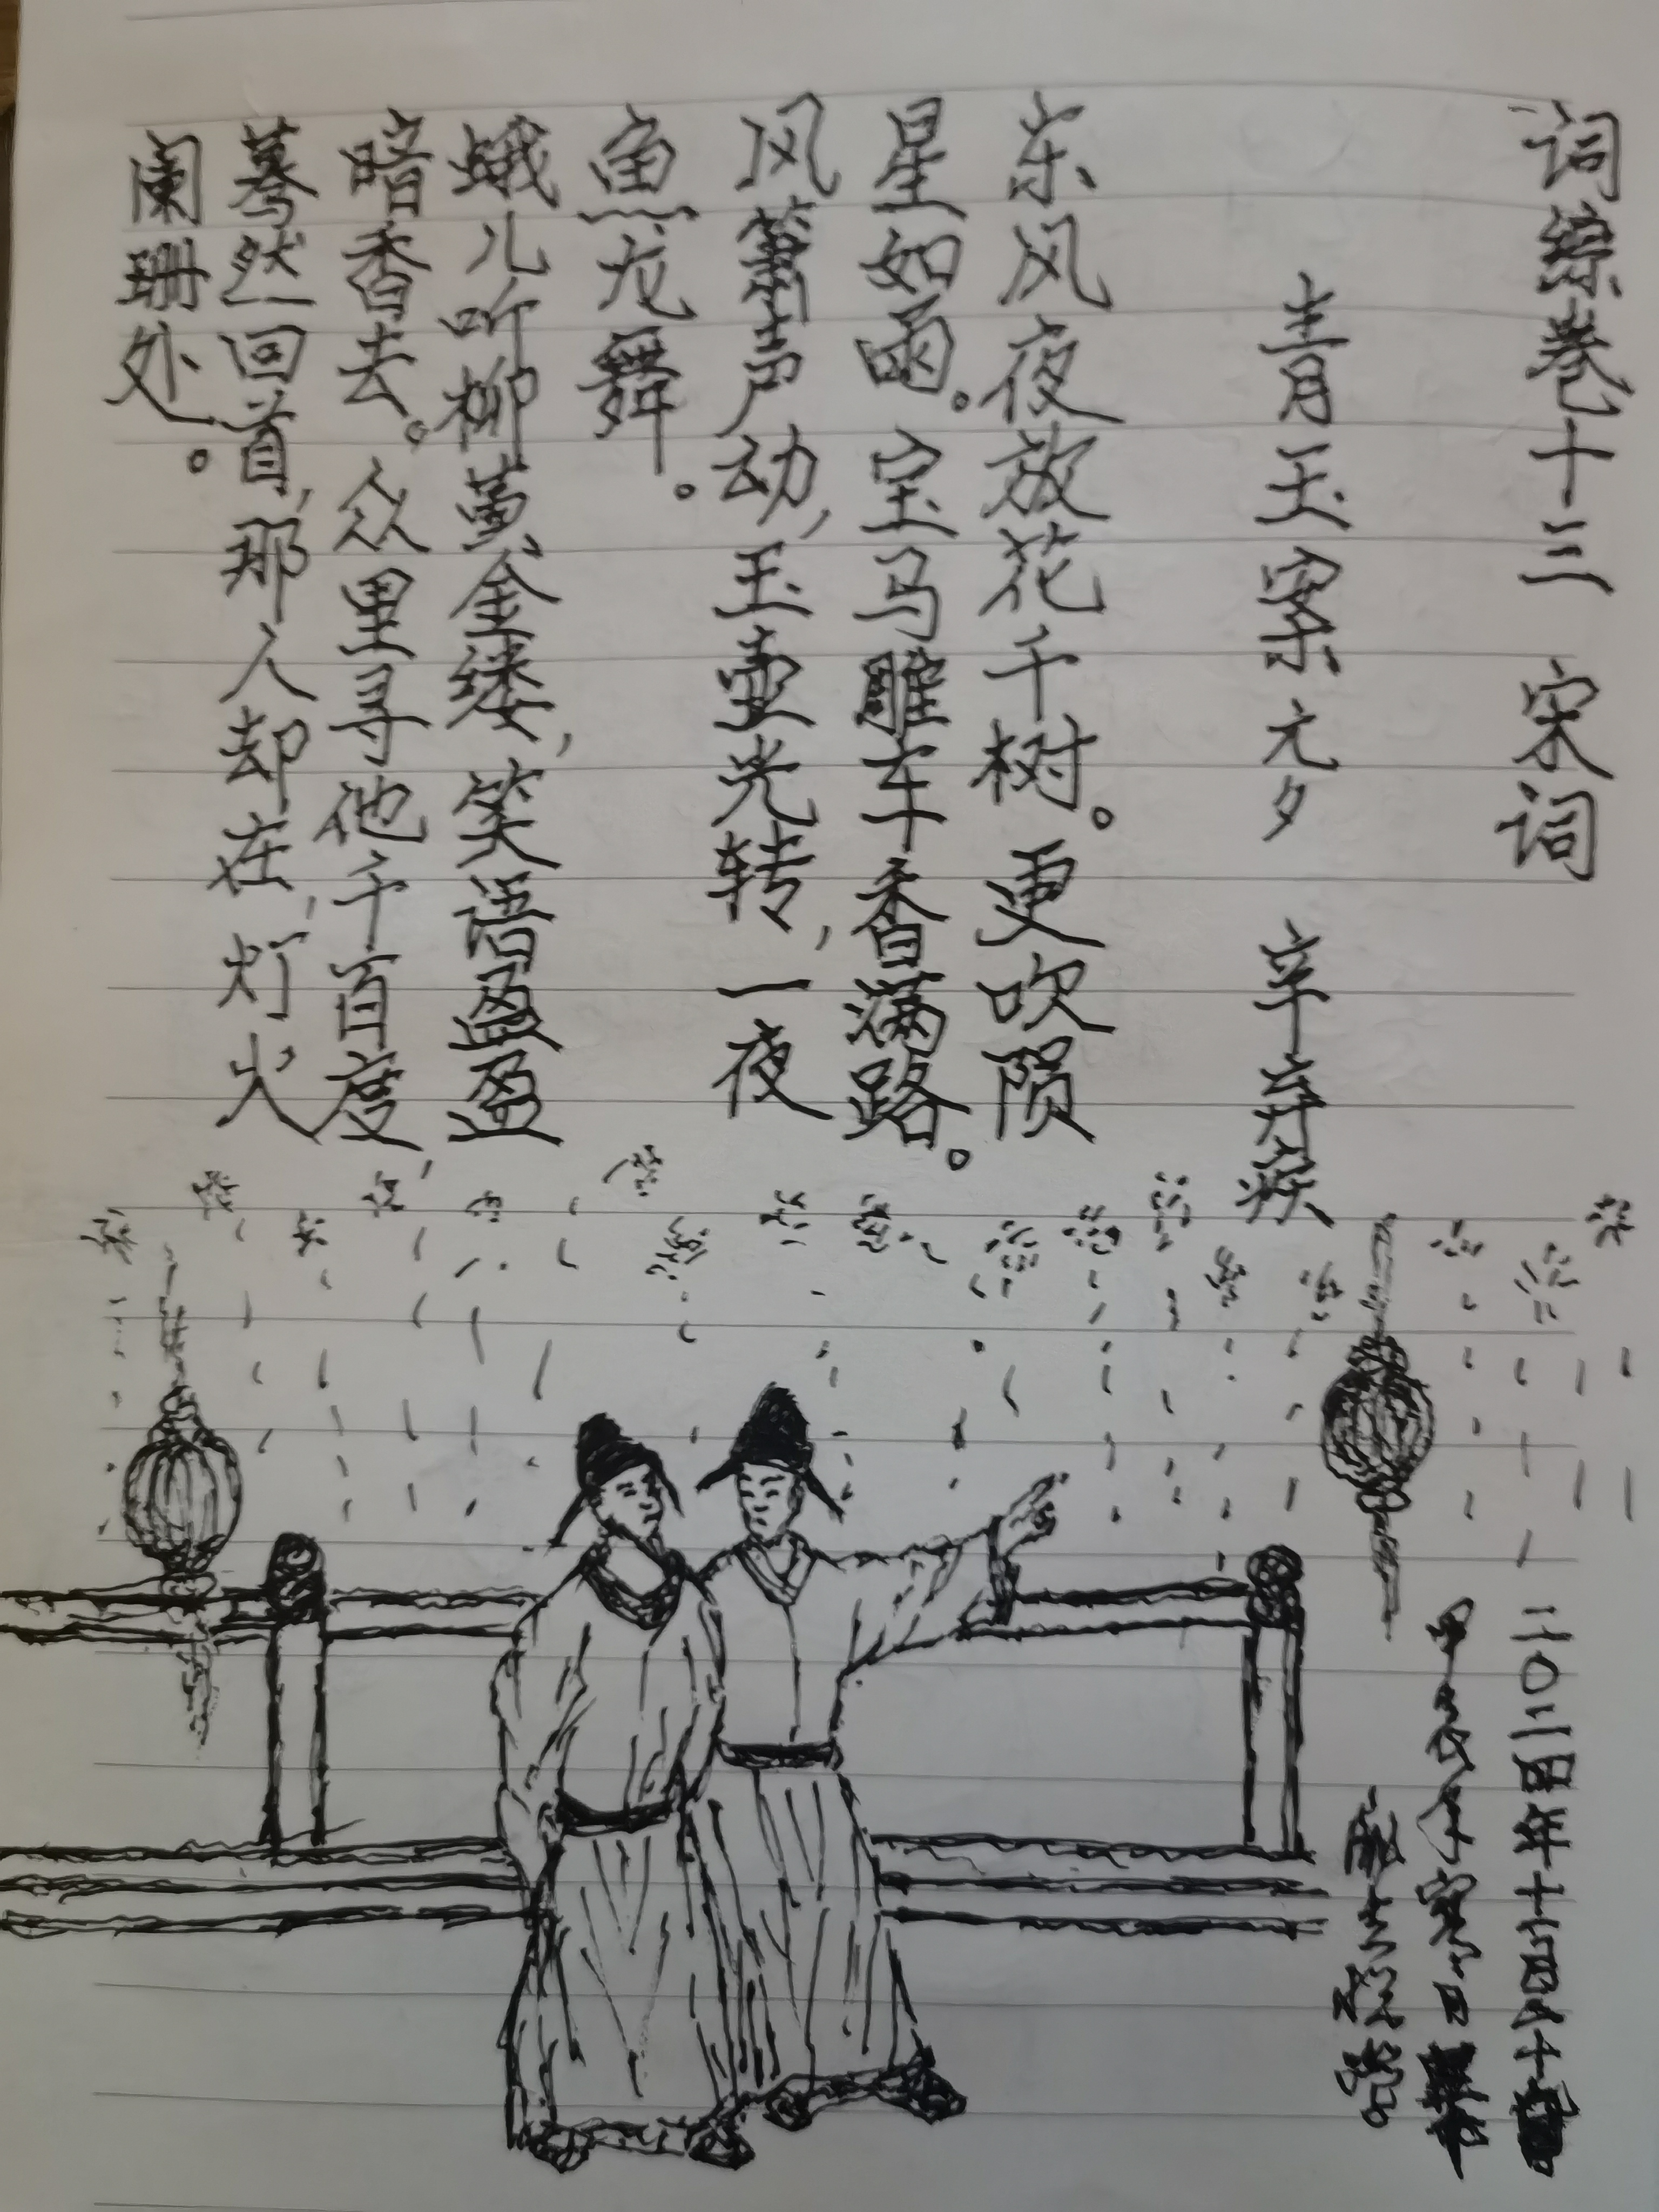 词综卷十三 宋词
青玉案元夕 辛弃疾
东风夜放花千树。更吹陨
星如雨。宝马雕车香满路。
风箫声动,玉壶光转,一夜
鱼龙舞。
蛾儿听柳黄金缕,笑语盈盈
暗香去。众里寻他千百度,
蓦然回首,那人却在,灯火
阑珊处。
二〇二四年十
甲辰年寒